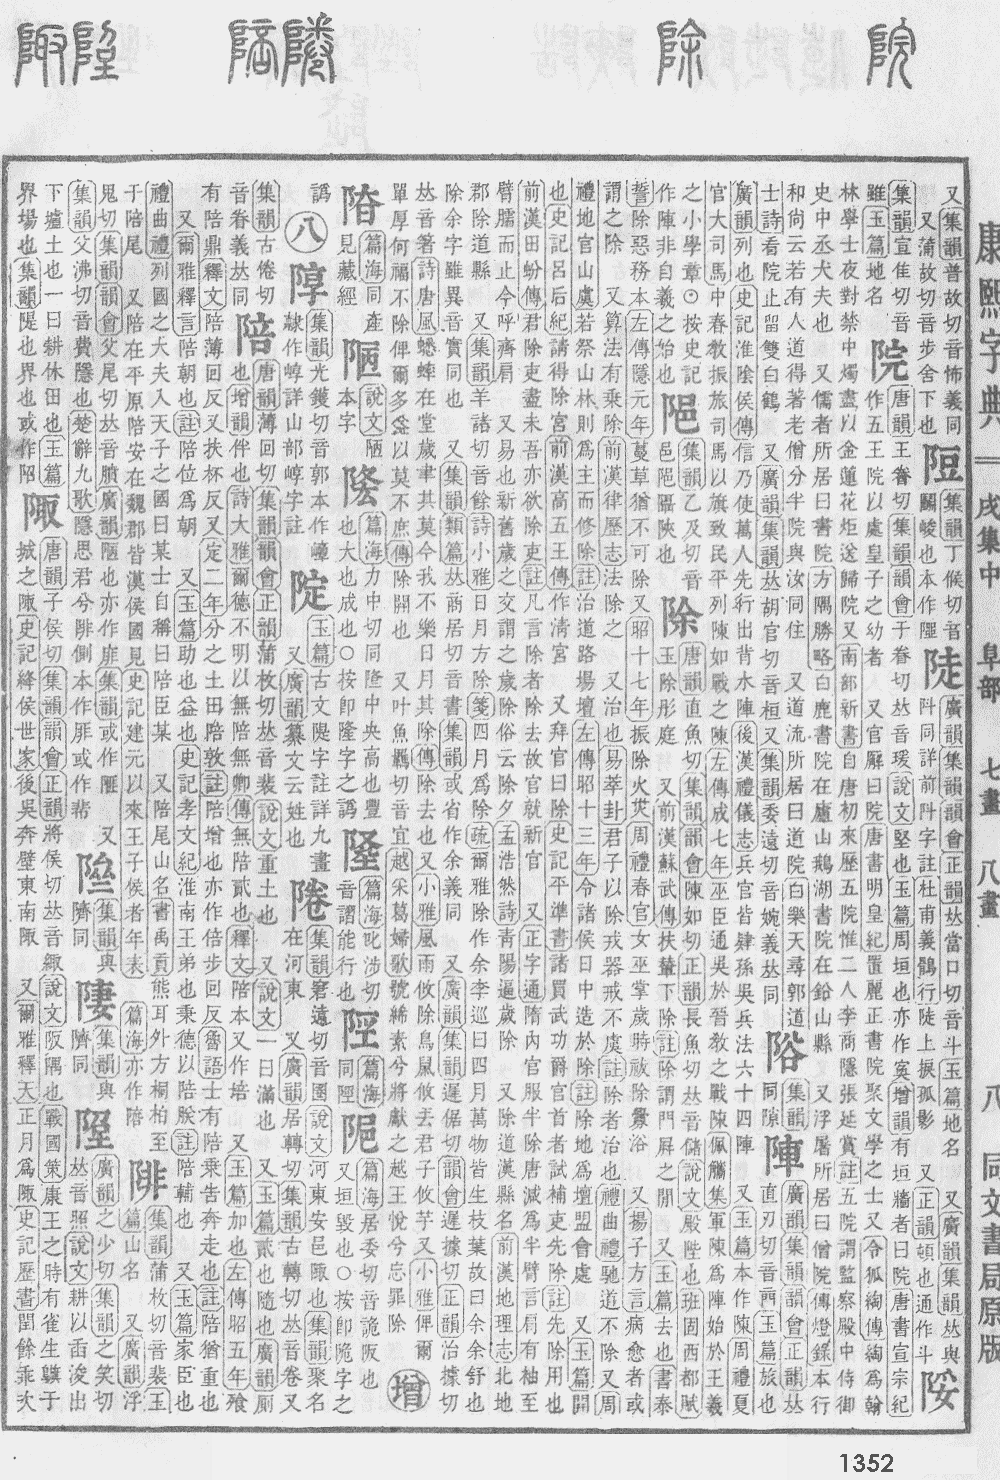 康熙字典 戌集中 阜部 七畫 八畫 八 同文書局原版
又集韻普故切音怖義同
又蒲故切音步舍下也
集韻丁候切音
鬭峻也本作
陡
廣韻集韻韻會正韻𠀤當口切音斗玉篇地名 又廣韻集韻𠀤與
阧同詳前阧字註杜甫義鶻行陡上捩孤影 又正韻頓也通作斗
集韻宣隹切音
雖玉篇地名
院
唐韻王眷切集韻韻會于眷切𠀤音瑗說文堅也玉篇周垣也亦作寏增韻有垣牆者曰院唐書宣宗紀
作五王院以處皇子之幼者 又官廨曰院唐書明皇紀置麗正書院聚文學之士又令狐綯傳綯爲翰
林學士夜對禁中燭盡以金蓮花炬送歸院又南部新書自唐初來歷五院惟二人李商隱張延賞註五院謂監察殿中侍御
史中丞大夫也 又儒者所居曰書院方隅勝略白鹿書院在廬山鵝湖書院在鉛山縣 又浮屠所居曰僧院傳燈錄本行
和尚云若有人道得著老僧分半院與汝同住 又道流所居曰道院白樂天尋郭道
士詩看院止留雙白鶴 又廣韻集韻𠀤胡官切音桓又集韻委遠切音婉義𠀤同
集韻
同隙
陣
廣韻集韻韻會正韻𠀤
直刃切音 玉篇旅也
廣韻列也史記淮陰侯傳信乃使萬人先行出背水陣後漢禮儀志兵官皆肄孫吳兵法六十四陣 又玉篇本作陳周禮夏
官大司馬中春敎振旅司馬以旗致民平列陳如戰之陳左傳成七年巫臣通吳於晉敎之戰陳佩觿集軍陳爲陣始於王羲
之小學章○按史記
作陣非自羲之始也
集韻乙及切音
邑 陜也
除
唐韻直魚切集韻韻會陳如切正韻長魚切𠀤音儲說文殿陛也班固西都賦
玉除彤庭 又前漢蘇武傳扶輦下除註除謂門屛之閒 又玉篇去也書泰
誓除惡務本左傳隱元年蔓草猶不可除又昭十七年振除火災周禮春官女巫掌歲時祓除釁浴 又揚子方言病愈者或
謂之除 又算法有乘除前漢律歷志法除之 又治也易萃卦君子以除戎器戒不虞註除者治也禮曲禮馳道不除又周
禮地官山虞若祭山林則爲主而修除註治道路場壇左傳昭十三年令諸侯日中造於除註除地爲壇盟會處 又玉篇開
也史記呂后紀請得除宮前漢高五王傳作清宮 又拜官曰除史記平準書諸買武功爵官首者試補吏先除註先除用也
前漢田蚡傳君除吏盡未吾亦欲除吏註凡言除者除去故官就新官 又正字通隋內官服半除唐減爲半臂言肩有袖至
臂臑而止今呼齊肩 又易也新舊歲之交謂之歲除俗云除夕孟浩然詩靑陽逼歲除 又除道漢縣名前漢地理志北地
郡除道縣 又集韻羊諸切音餘詩小雅日月方除箋四月爲除疏爾雅除作余李巡曰四月萬物皆生枝葉故曰余余舒也
除余字雖異音實同也 又集韻類篇𠀤商居切音書集韻或省作余義同 又廣韻集韻遲倨切韻會遲據切正韻治據切
𠀤音箸詩唐風蟋蟀在堂歲聿其莫今我不樂日月其除傳除去也又小雅風雨攸除鳥鼠攸去君子攸芋又小雅俾爾
單厚何福不除俾爾多益以莫不庶傳除開也 又叶魚羈切音宜越采葛婦歌號絺素兮將獻之越王悅兮忘罪除
增
篇海同產
見藏經
說文陋
本字
篇海力中切同隆中央高也豐
也大也成也○按卽隆字之譌
篇海叱涉切
音謂能行也
篇海
同陘
篇海居委切音詭阪也
又垣毀也○按卽陒字之
譌
八
集韻光鑊切音郭本作嶂
隸作崞詳山部崞字註
玉篇古文隄字註詳九畫
又廣韻纂文云姓也
集韻窘遠切音圈說文河東安邑陬也集韻聚名
在河東 又廣韻居轉切集韻古轉切𠀤音卷又
集韻古倦切
音眷義𠀤同
陪
唐韻薄回切集韻韻會正韻蒲枚切𠀤音裴說文重土也 又說文一曰滿也 又玉篇貳也隨也廣韻厠
也增韻伴也詩大雅爾德不明以無陪無卿傳無陪貳也釋文陪本又作培 又玉篇加也左傳昭五年飧
有陪鼎釋文陪薄回反又扶杯反又定二年分之土田陪敦註陪增也亦作倍步回反魯語士有陪乘告奔走也註陪猶重也
又爾雅釋言陪朝也註陪位爲朝 又玉篇助也益也史記孝文紀淮南王弟也秉德以陪朕註陪輔也 又玉篇家臣也
禮曲禮列國之大夫入天子之國曰某士自稱曰陪臣某 又陪尾山名書禹貢熊耳外方桐柏至
于陪尾 又陪在平原陪安在魏郡皆漢侯國見史記建元以來王子侯者年表 篇海亦作陪
陫
集韻蒲枚切音裴玉
篇山名 又廣韻浮
鬼切集韻韻會父尾切𠀤音膹廣韻陋也亦作厞集韻或作
集韻父沸切音費隱也楚辭九歌隱思君兮陫側本作厞或作 又
集韻與
隮同
集韻與
隮同
廣韻之少切集韻之笑切
𠀤音照說文耕以臿浚出
下壚土也一曰耕休田也玉篇
界場也集韻隄也界也或作𨹸
陬
唐韻子侯切集韻韻會正韻將侯切𠀤音緅說文阪隅也戰國策康王之時有雀生鸇于
城之陬史記絳侯世家後吳奔壁東南陬 又爾雅釋天正月爲陬史記歷書閏餘乖次
1352